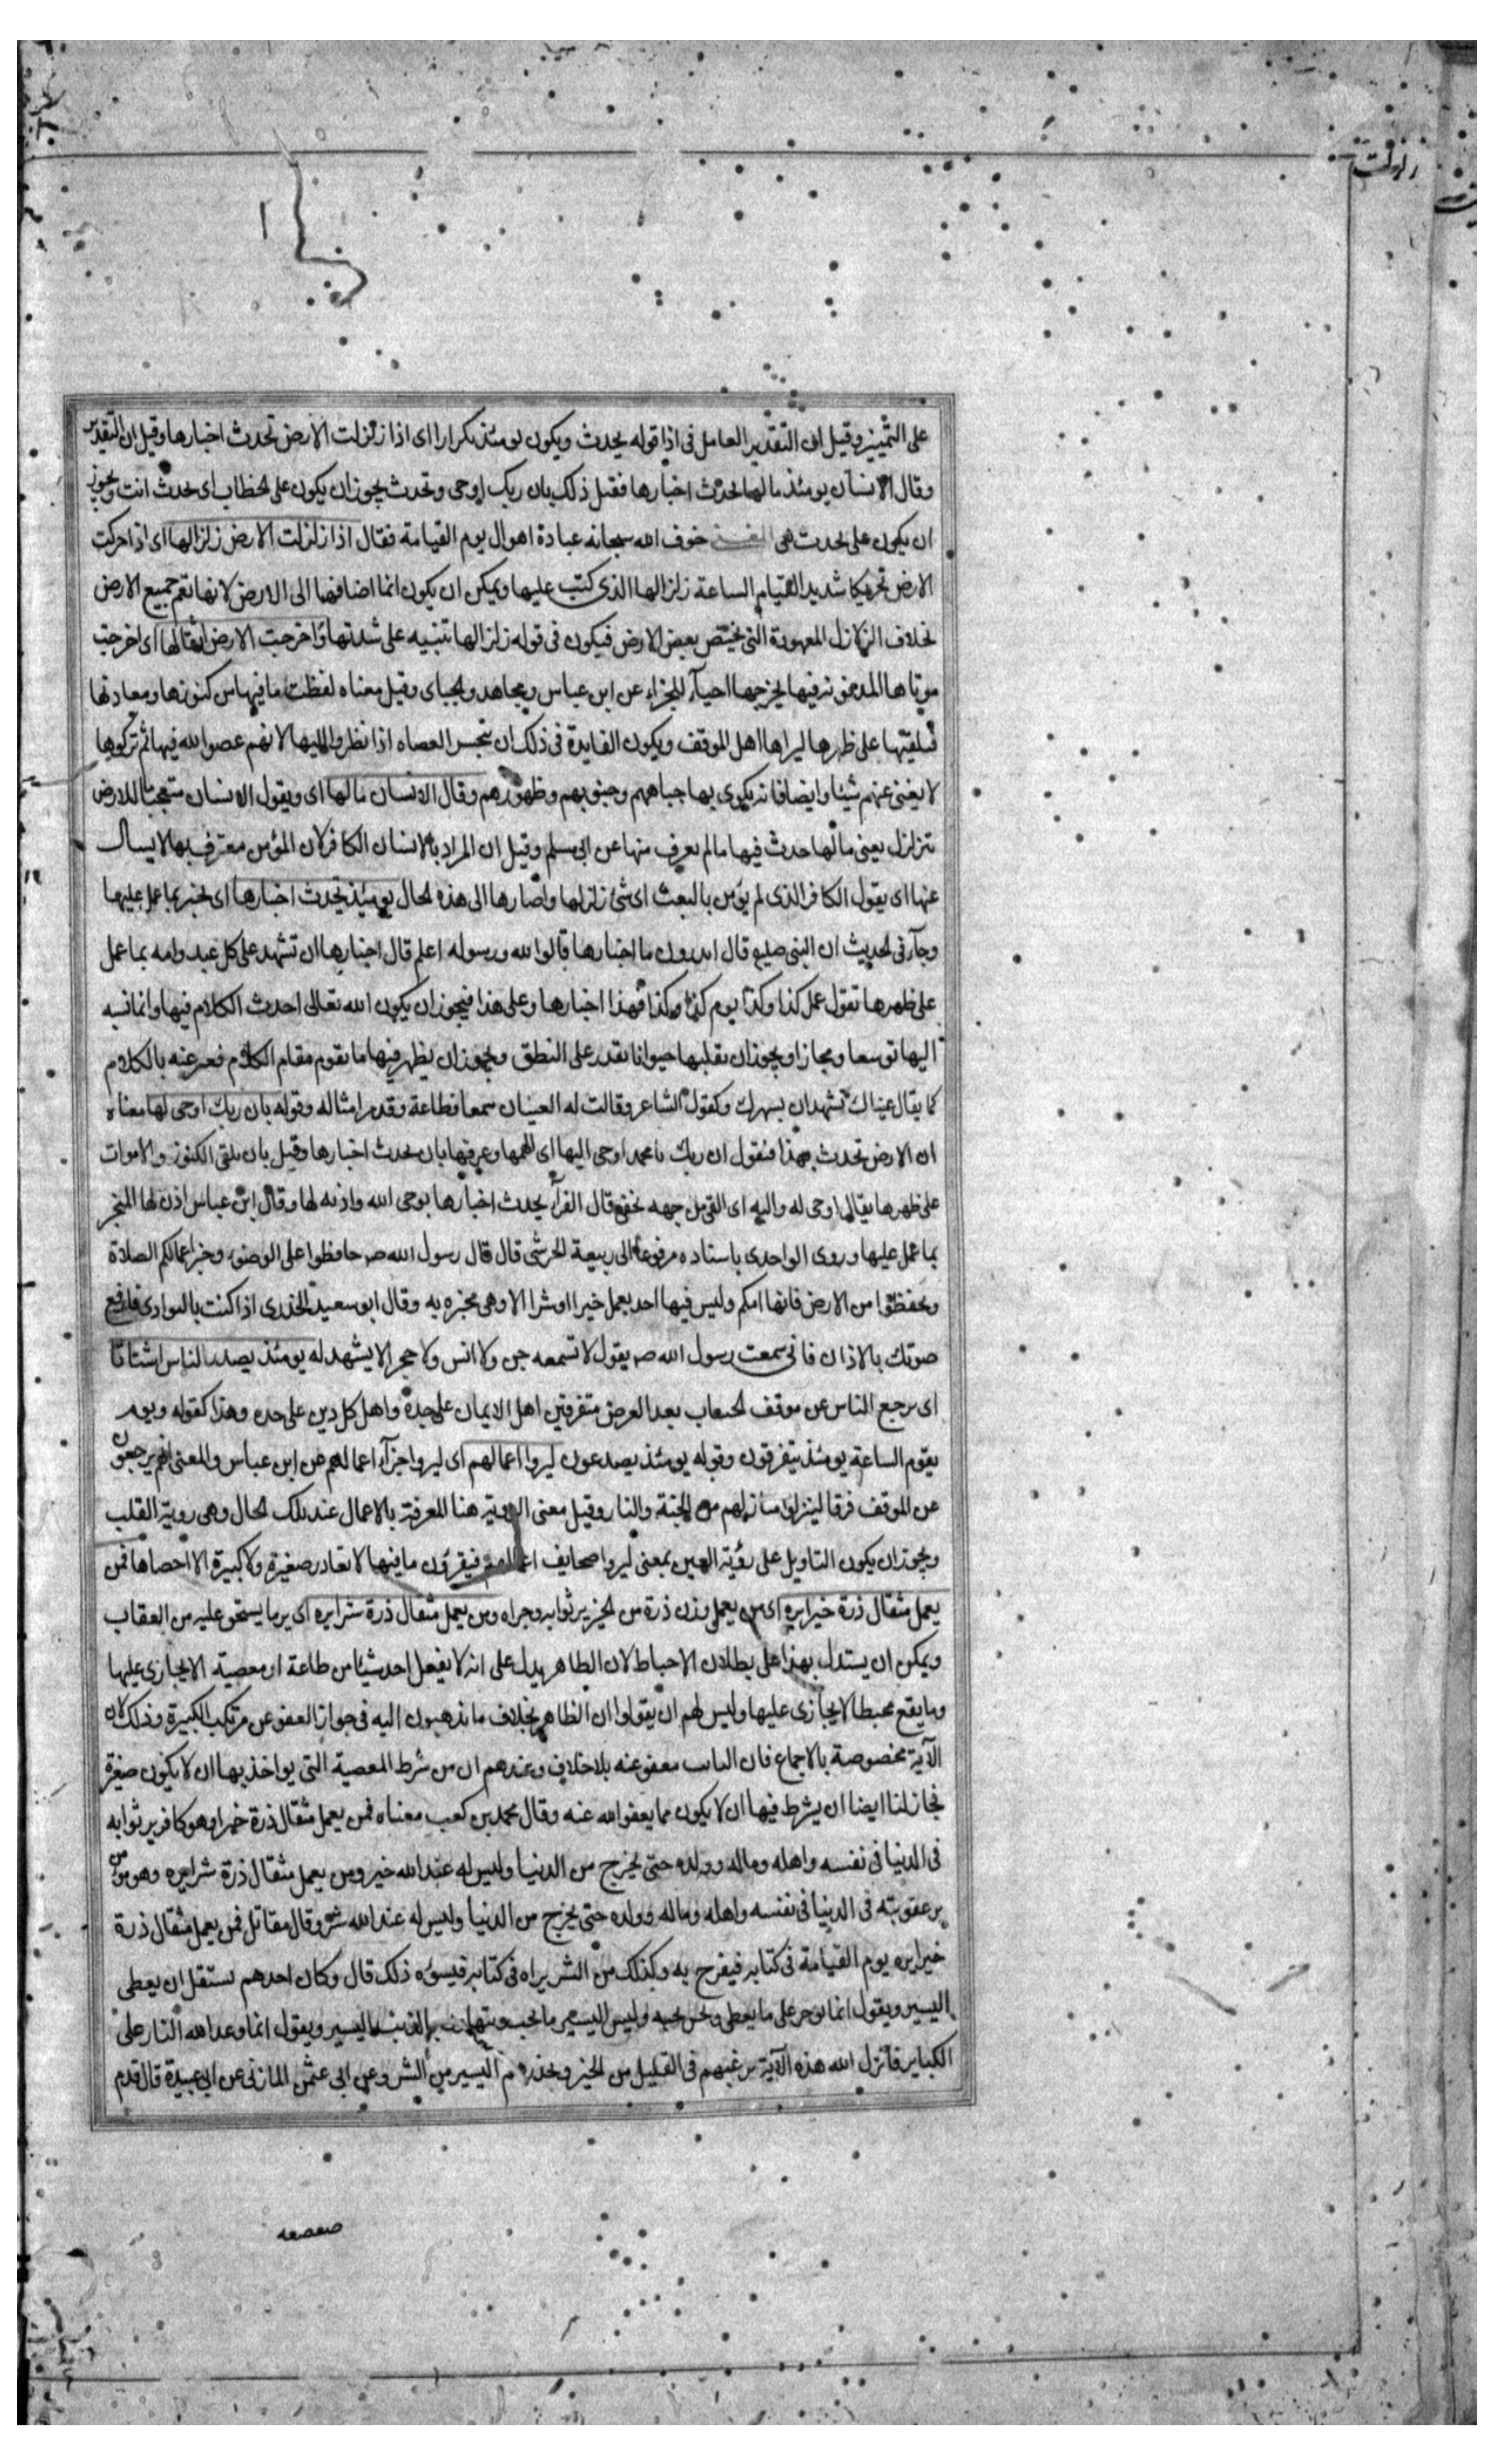 زلزلت
على التمييز وقيل ان التقدير العامل فى اذا قوله يحدث ويكون يومئذ تكرارا اى اذا زلزلت الارض تحدث اخبارها وقيل ان التقدير
وقال الانسان يومئذ مالها تحدث اخبارها فقيل ذلك بان ربك اوحى وتحدث يجوز ان يكون على الخطاب اى تحدث انت ويجوز
ان يكون على تحدث هى خوف الله سبحانه عباده اهوال يوم القيامة فقال اذا زلزلت الارض زلزالها اى اذا حركت
الارض تحريكا شديدا لقيام الساعة زلزالها الذى كتب عليها ويمكن ان يكون انما اضافها الى الارض لانها تعم جميع الارض
بخلاف الزلازل المعهودة التى تختص ببعض الارض فيكون فى قوله زلزالها تنبيه على شدتها واخرجت الارض اثقالها اى اخرجت
موتاها المدفونة فيها يخرجها احياء للجزاء عن ابن عباس ومجاهد والجباى وقيل معناه لفظت ما فيها من كنوزها ومعادنها
فتلقيها على ظهرها ليراها اهل الموقف ويكون الفايدة فى ذلك ان تحسر العصاه اذا نظروا اليها لانهم عصوا الله فيها ثم تركوها
لا يغنى عنهم شيئا وايضا فانه يكوى بها جباههم وجنوبهم وظهورهم وقال الانسان مالها اى ويقول الانسان متعجبا ما للارض
تتزلزل يعنى مالها حدث فيها مالم يعرف منها عن ابى مسلم وقيل ان المراد بالانسان الكافر لان المؤمن معترف بها لا يسال
عنها اى يقول الكافر الذى لم يؤمن بالبعث اى شئ زلزلها واصارها الى هذه الحال يومئذ تحدث اخبارها اى تخبر بما عمل عليها
وجاء فى الحديث ان النبى صلعم قال اتدرون ما اخبارها قالوا الله ورسوله اعلم قال اخبارها ان تشهد على كل عبد وامه بما عمل
على ظهرها تقول عمل كذا وكذا يوم كذا وكذا فهذا اخبارها وعلى هذا فيجوز ان يكون الله تعالى احدث الكلام فيها وانما نسبه
اليها توسعا ومجازا ويجوز ان يقلبها حيوانا يقدر على النطق ويجوز ان يظهر فيها ما يقوم مقام الكلام فعبر عنه بالكلام
كما يقال عيناك تشهدان بسهرك وكقول الشاعر وقالت له العينان سمعا وطاعة وقد مر امثاله وقوله بان ربك اوحى لها معناه
ان الارض تحدث بهذا فتقول ان ربك يا محمد اوحى اليها اى الهمها وعرفها بان تحدث اخبارها وقيل بان تلقى الكنوز والاموات
على ظهرها يقال اوحى له واليه اى القى من جهه تخفى قال الفراء يحدث اخبارها بوحى الله واذنه لها وقال ابن عباس اذن لها لتخبر
بما عمل عليها وروى الواحدى باسناده مرفوعا الى ربيعة الحرشى قال قال رسول الله صـ حافظوا على الوضوء وخير اعمالكم الصلاة
وتحفظوا من الارض فانها امكم وليس فيها احد يعمل خيرا او شرا الا وهى مخبره به وقال ابو سعيد الخدرى اذا كنت بالبوادى فارفع
صوتك بالاذان فانى سمعت رسول الله صـ يقول لا تسمعه جن ولا انس ولا حجر الا يشهد له يومئذ يصدر الناس اشتاتا
اى يرجع الناس عن موقف الحساب بعد العرض متفرقين اهل الايمان على حدة واهل كل دين على حده وهذا كقوله ويوم
يقوم الساعة يومئذ يتفرقون وقوله يومئذ يصدعون ليروا اعمالهم اى ليروا جزاء اعمالهم عن ابن عباس والمعنى انهم يرجعون
عن الموقف فرقا لينزلوا منازلهم من الجنة والنار وقيل معنى الروية هنا المعرفة بالاعمال عند تلك الحال وهى روية القلب
ويجوز ان يكون التاويل على رؤية العين بمعنى ليروا صحايف اعمالهم فيقرؤن ما فيها لا تغادر صغيرة ولا كبيرة الا احصاها فمن
يعمل مثقال ذرة خيرا يره اى من يعمل وزن ذرة من الخير ير ثوابه وجزاه ومن يعمل مثقال ذرة شرا يره اى ير ما يستحق عليه من العقاب
ويمكن ان يستدل بهذا على بطلان الاحباط لان الظاهر يدل على انه لا يفعل احد شيئا من طاعة او معصية الا يجازى عليها
وما يقع محبطا لا يجازى عليها وليس لهم ان يقولوا ان الظاهر بخلاف ما تذهبون اليه فى جواز العفو عن مرتكب الكبيرة وذلك لان
الآية مخصوصة بالاجماع فان التايب معفو عنه بلا خلاف وعندهم ان من شرط المعصية التى يواخذ بها ان لا يكون صغيرة
فجاز لنا ايضا ان يشرط فيها ان لا يكون مما يعفو الله عنه وقال محمد بن كعب معناه فمن يعمل مثقال ذرة خيرا وهو كافر ير ثوابه
فى الدنيا فى نفسه واهله وماله وولده حتى يخرج من الدنيا وليس له عند الله خير ومن يعمل مثقال ذرة شرا يره وهو مؤمن
ير عقوبته فى الدنيا فى نفسه واهله وماله وولده حتى يخرج من الدنيا وليس له عند الله شر وقال مقاتل فمن يعمل مثقال ذرة
خيرا يره يوم القيامة فى كتابه فيفرح به وكذلك من الشر يراه فى كتابه فيسوءه ذلك قال وكان احدهم يستقل ان يعطى
اليسير ويقول انما نوجر على ما يعطى ونحن نحبه وليس اليسير مما نحب ويتهاون بالذنب اليسير ويقول انما وعد الله النار على
الكباير فانزل الله هذه الآية يرغبهم فى القليل من الخير ويحذرهم اليسير من الشر وعن ابى عثمن المازنى عن ابى عبيدة قال قدم
صعصعه